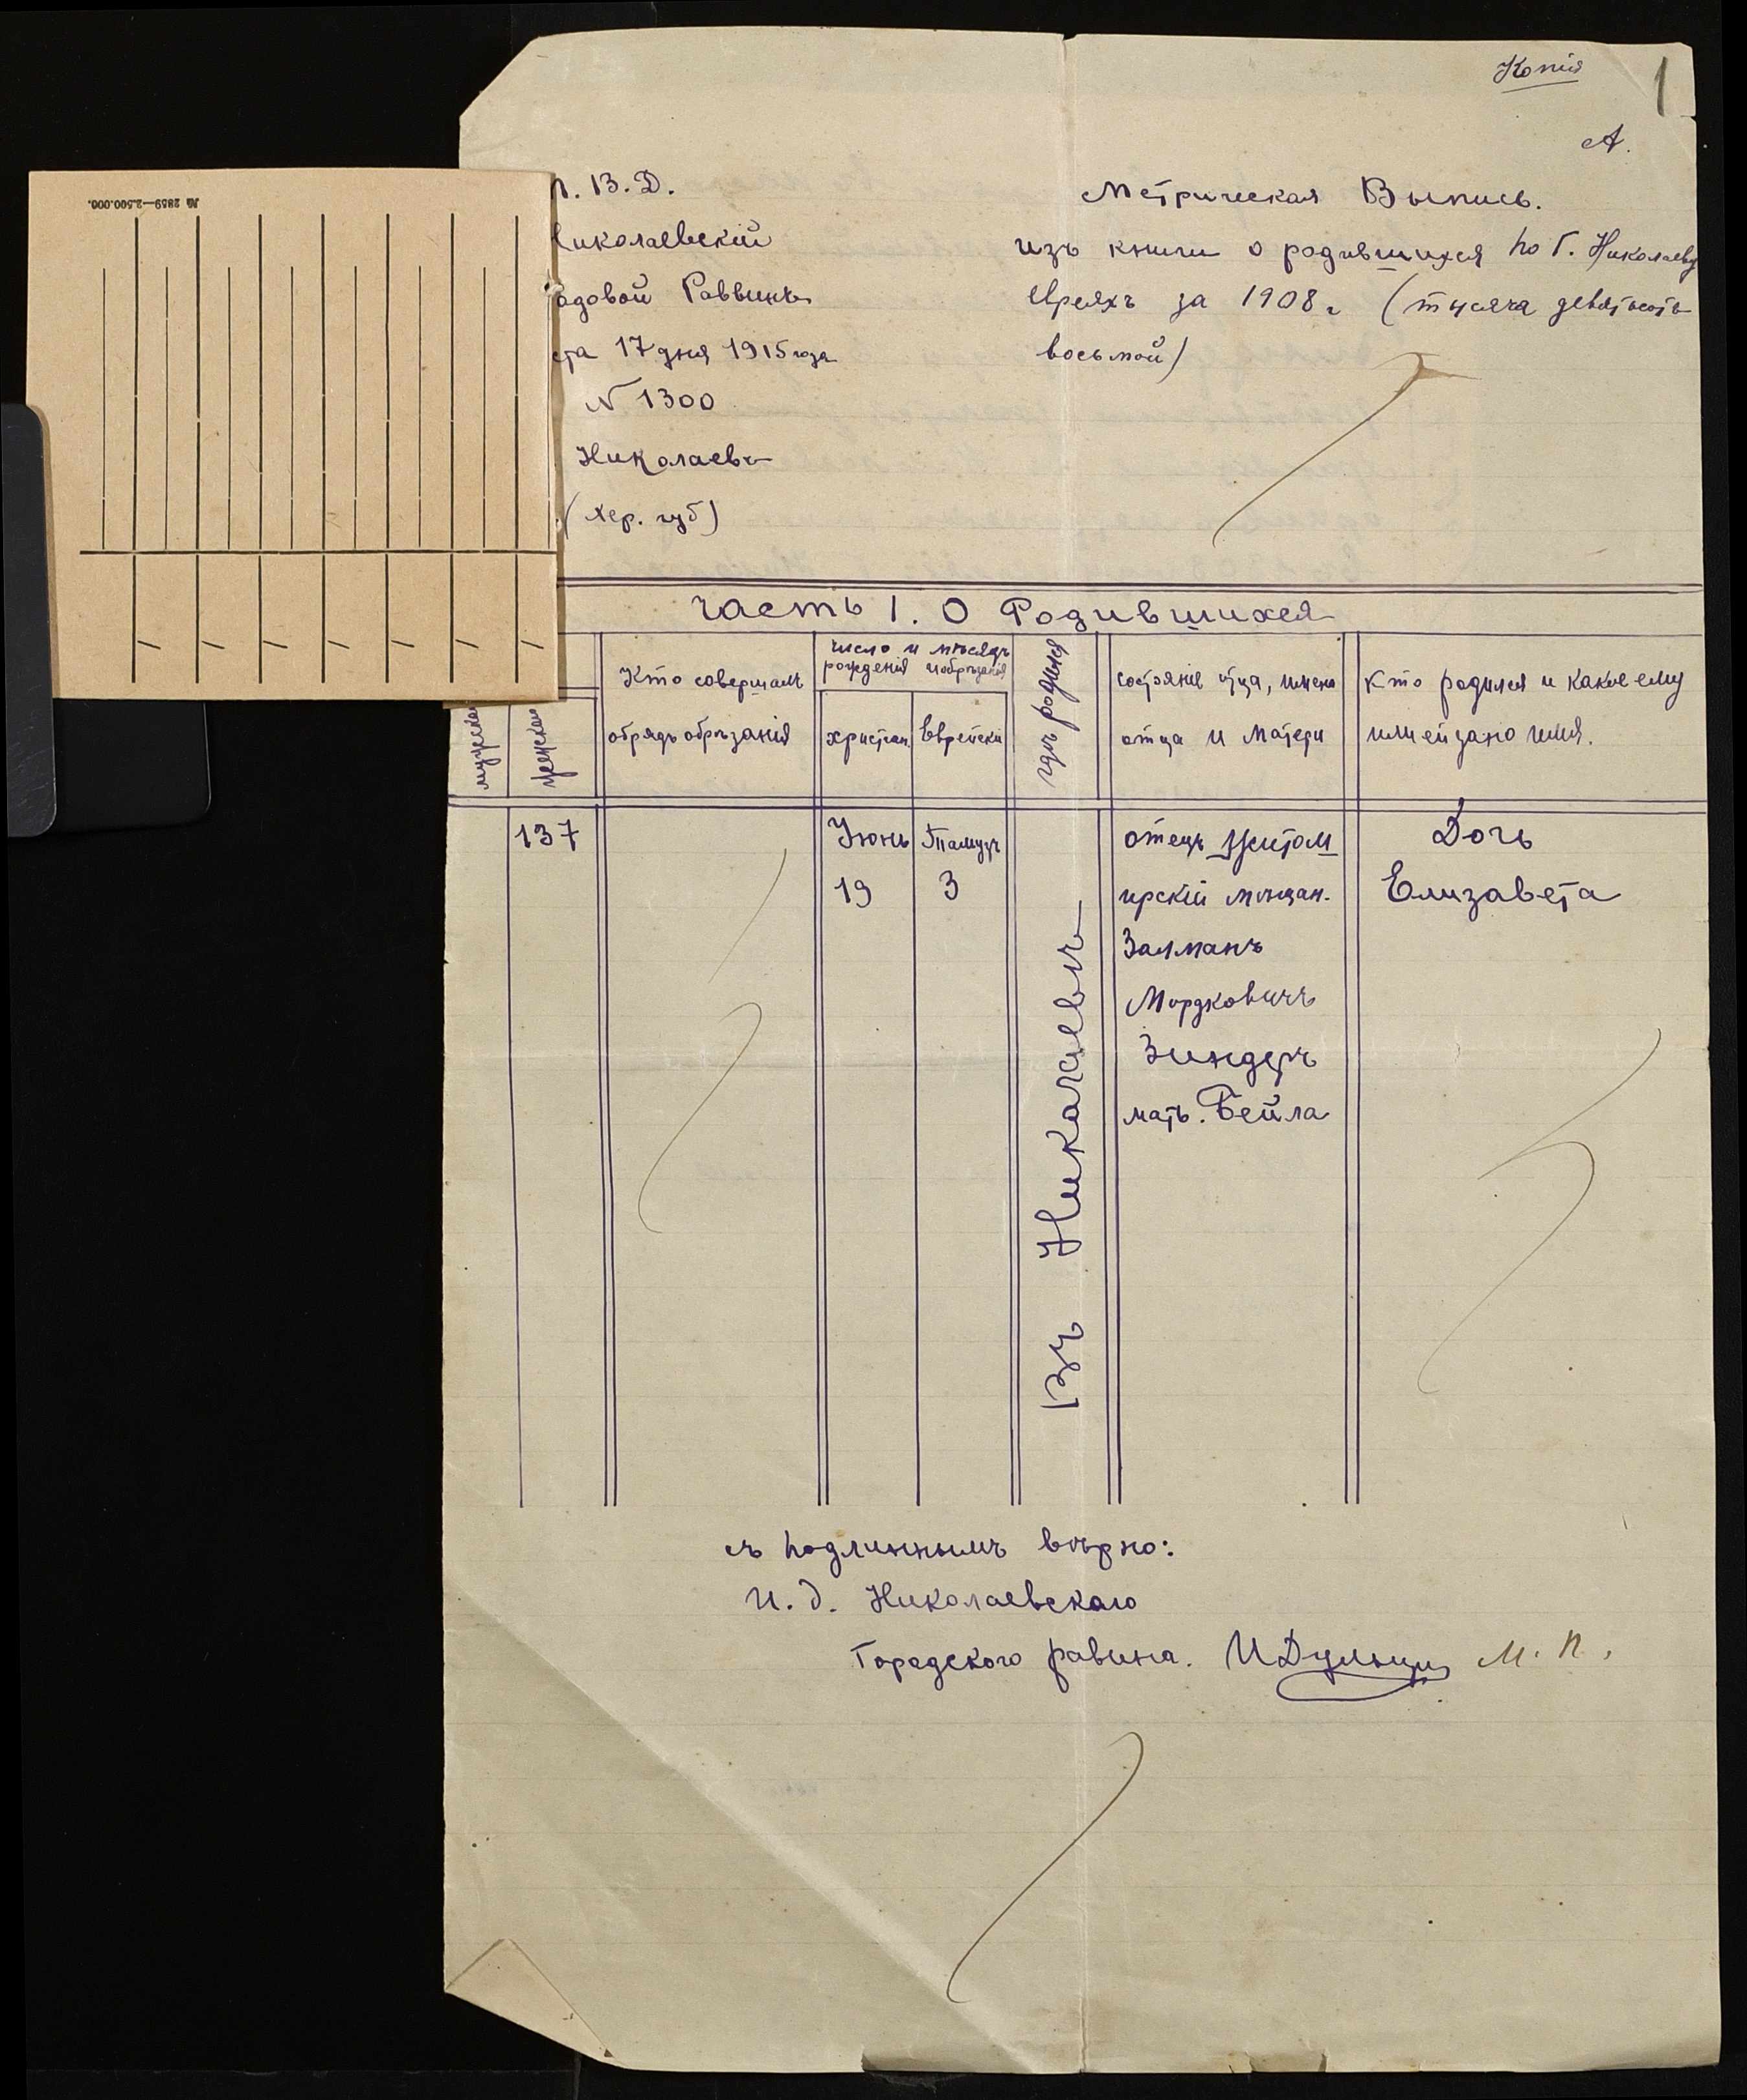 Копія
1
А.
№ 2859—2.500.000.
В. Д.
Метрическая Выпись.
изъ книги о родившихся по г. Николаеву
евреяхъ за 1908 г. (тысяча девятьсотъ
восьмой)
иколаевскій
адовой Раввинъ
та 17 дня 1915 года
N 1300
Николаевъ
(Хер. губ)
Часть I. О Родившихся
мужескаго
женскаго
Кто совершалъ
обрядъ обрѣзанія
число и мѣсяцъ
рожденія и обрѣзанія
христіан.
Еврейскій
гдѣ родился
состояніе отца, имена
отца и матери
Кто родился и какое ему
или ей дано имя.
137
Іюнь
19
Тамузъ
3
Въ Николаевѣ
отецъ Житом
ирскій мѣщан.
Залманъ
Мордковичъ
Зиндеръ
мать. Бейла
Дочь
Елизавета
съ подлиннымъ вѣрно:
И. д. Николаевскаго
Городского равина. М. П.